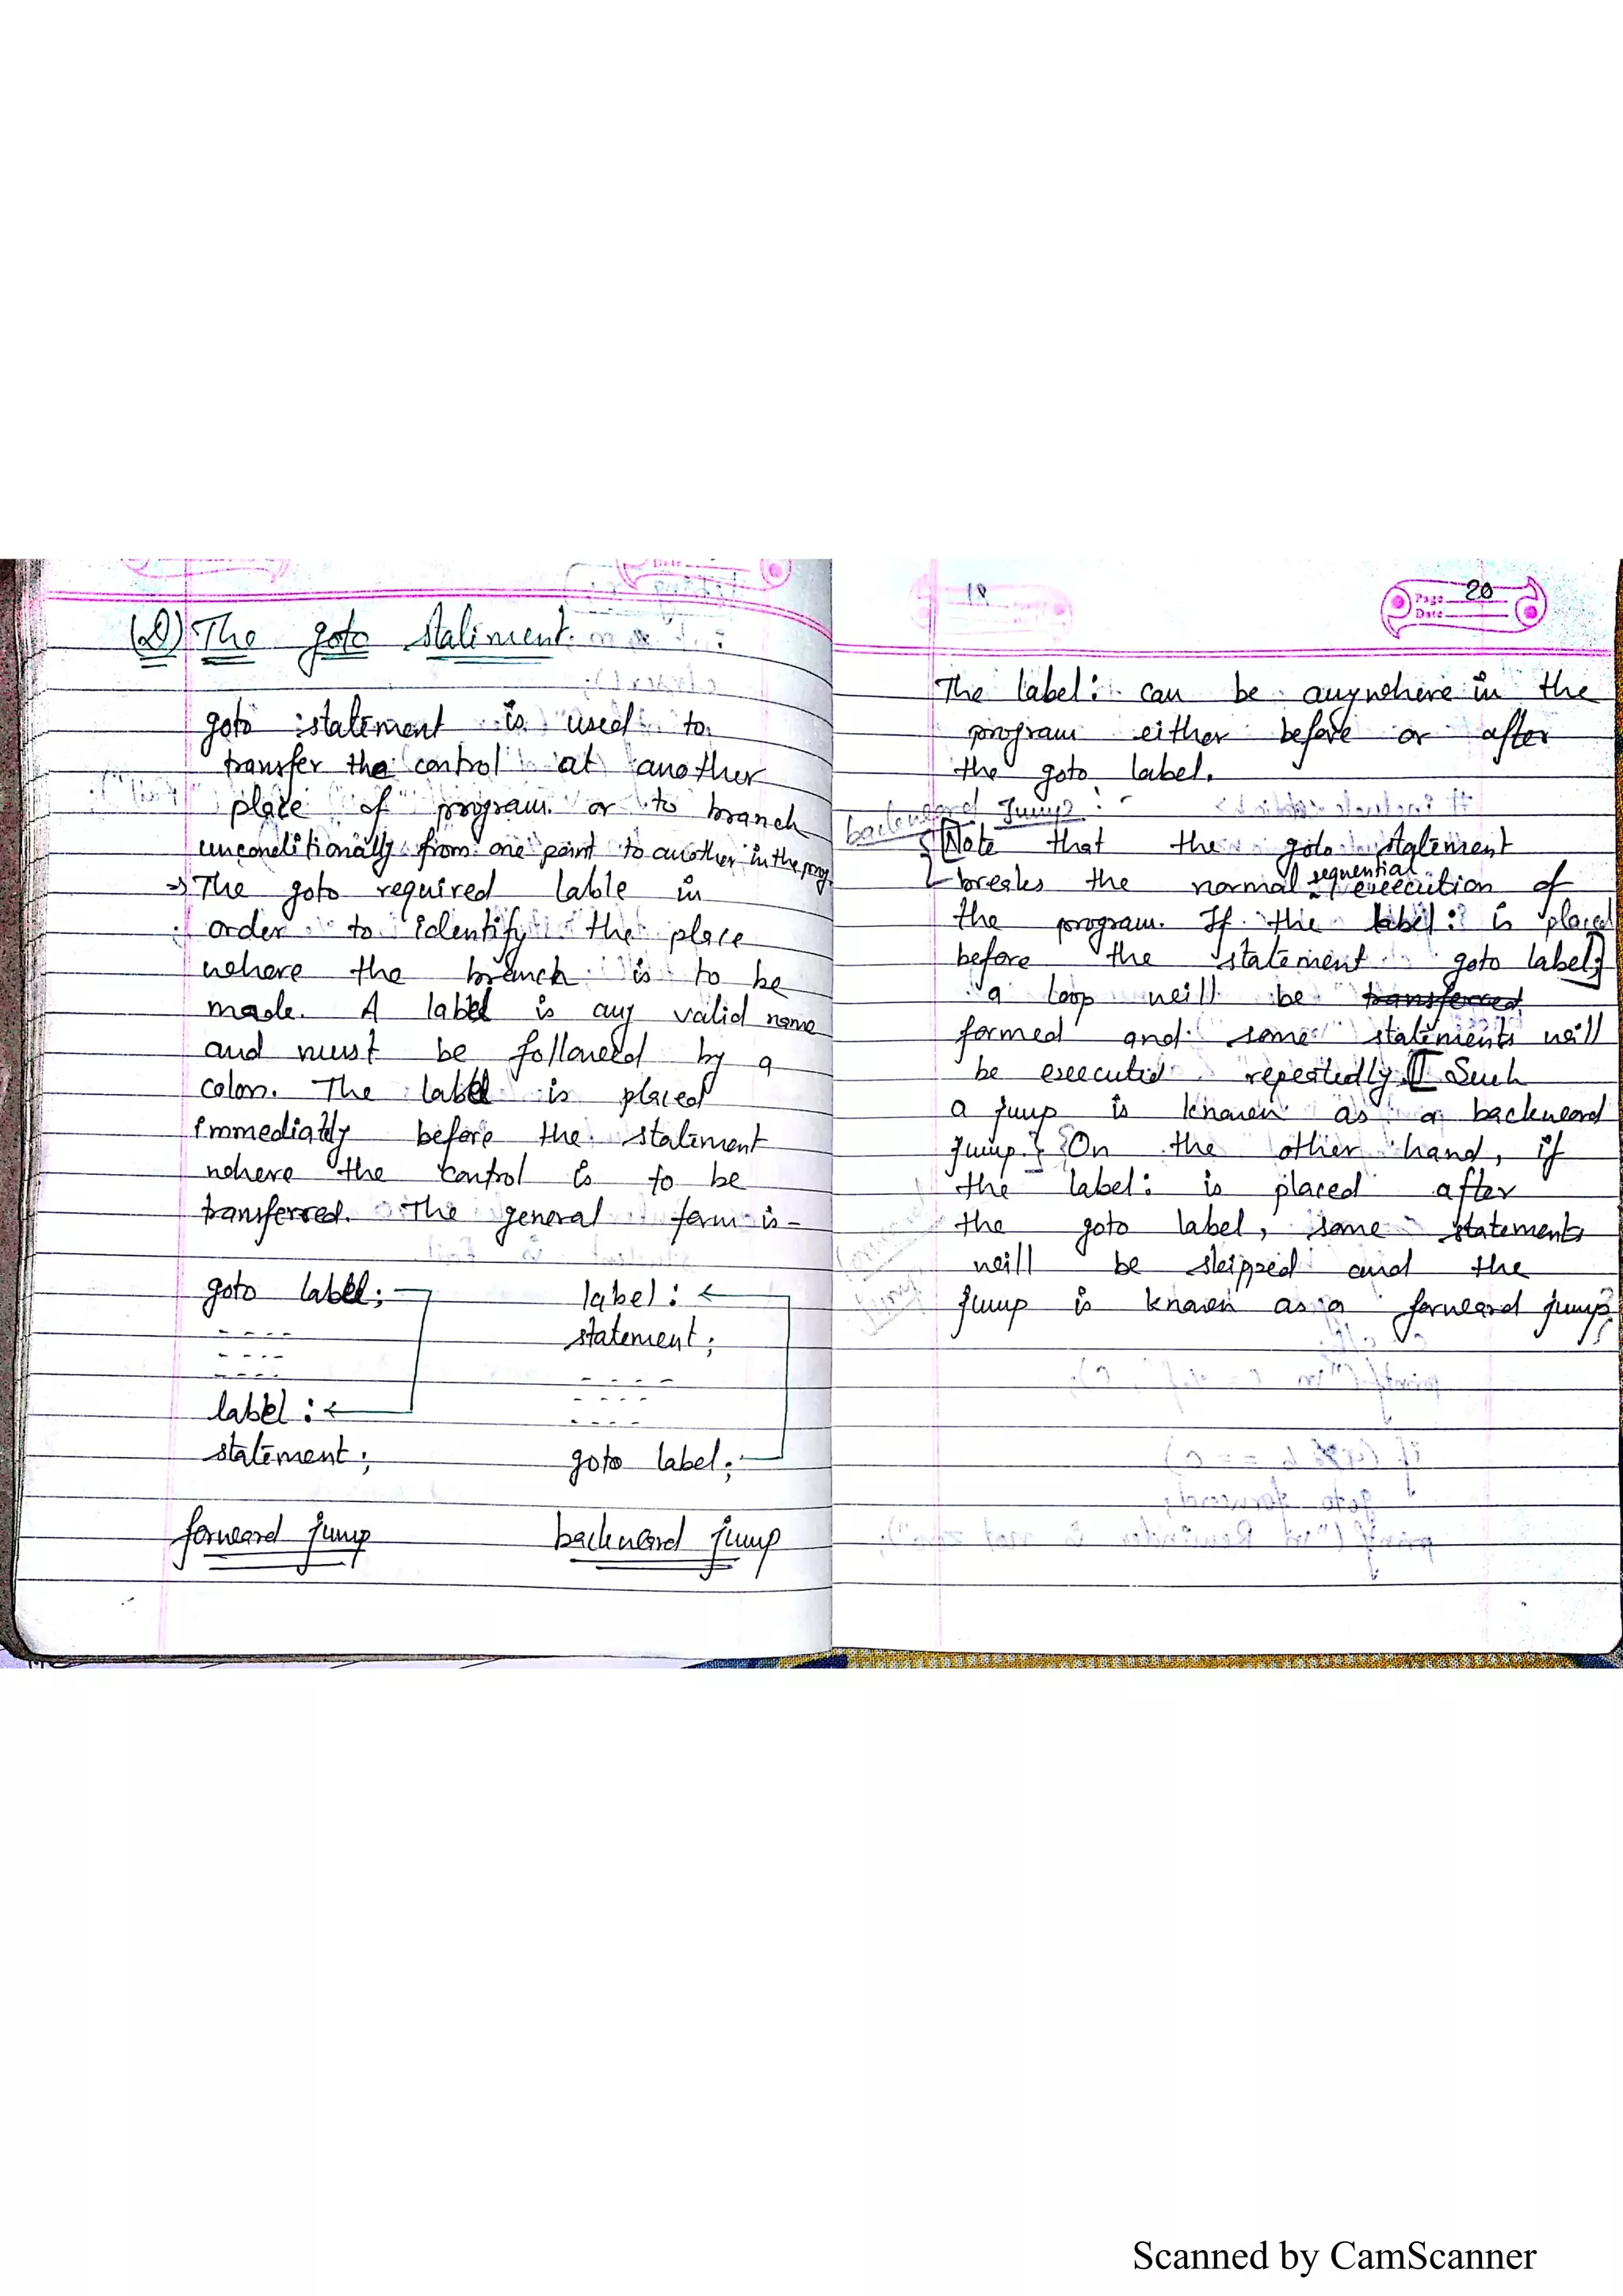 (D) The goto statement
goto statement is used to
transfer the control at another
place of program. or to branch
unconditionally from one point to another in the prog.
⇒ The goto required lable in
order to identify the place
where the branch is to be
made. A label is any valid name
and must be followed by a
colon. The label is placed
immediatly before the statement
where the control is to be
transferred. The general form is-
goto label;
label:
statement;
forward jump
label:
statement;
goto label;
backward jump
Page 20
Date
The label: can be anywhere in the
program either before or after
the goto label.
backward Jump
Note that the goto statement
breaks the normal sequential execution of
the program. If the label: is placed
before the statement goto label;
a loop will be transferred
formed and some statements will
be executed repeatedly. Such
a jump is known as a backward
jump. On the other hand, if
the label: is placed after
the goto label, some statements
will be skipped and the
jump is known as a forward jump.
forward
jump
Scanned by CamScanner